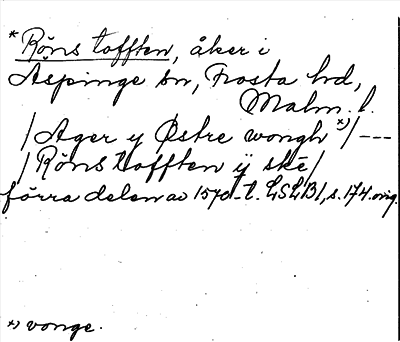 * Röns tofften, åker i
Äspinge sn, Frosta hd,
Malm. l.
/Ager y Østre wongh *)/---
/Röns tofften ÿ ske/
förra delen av 1570-t. LSLB1, s. 174. orig.
*) vonge.